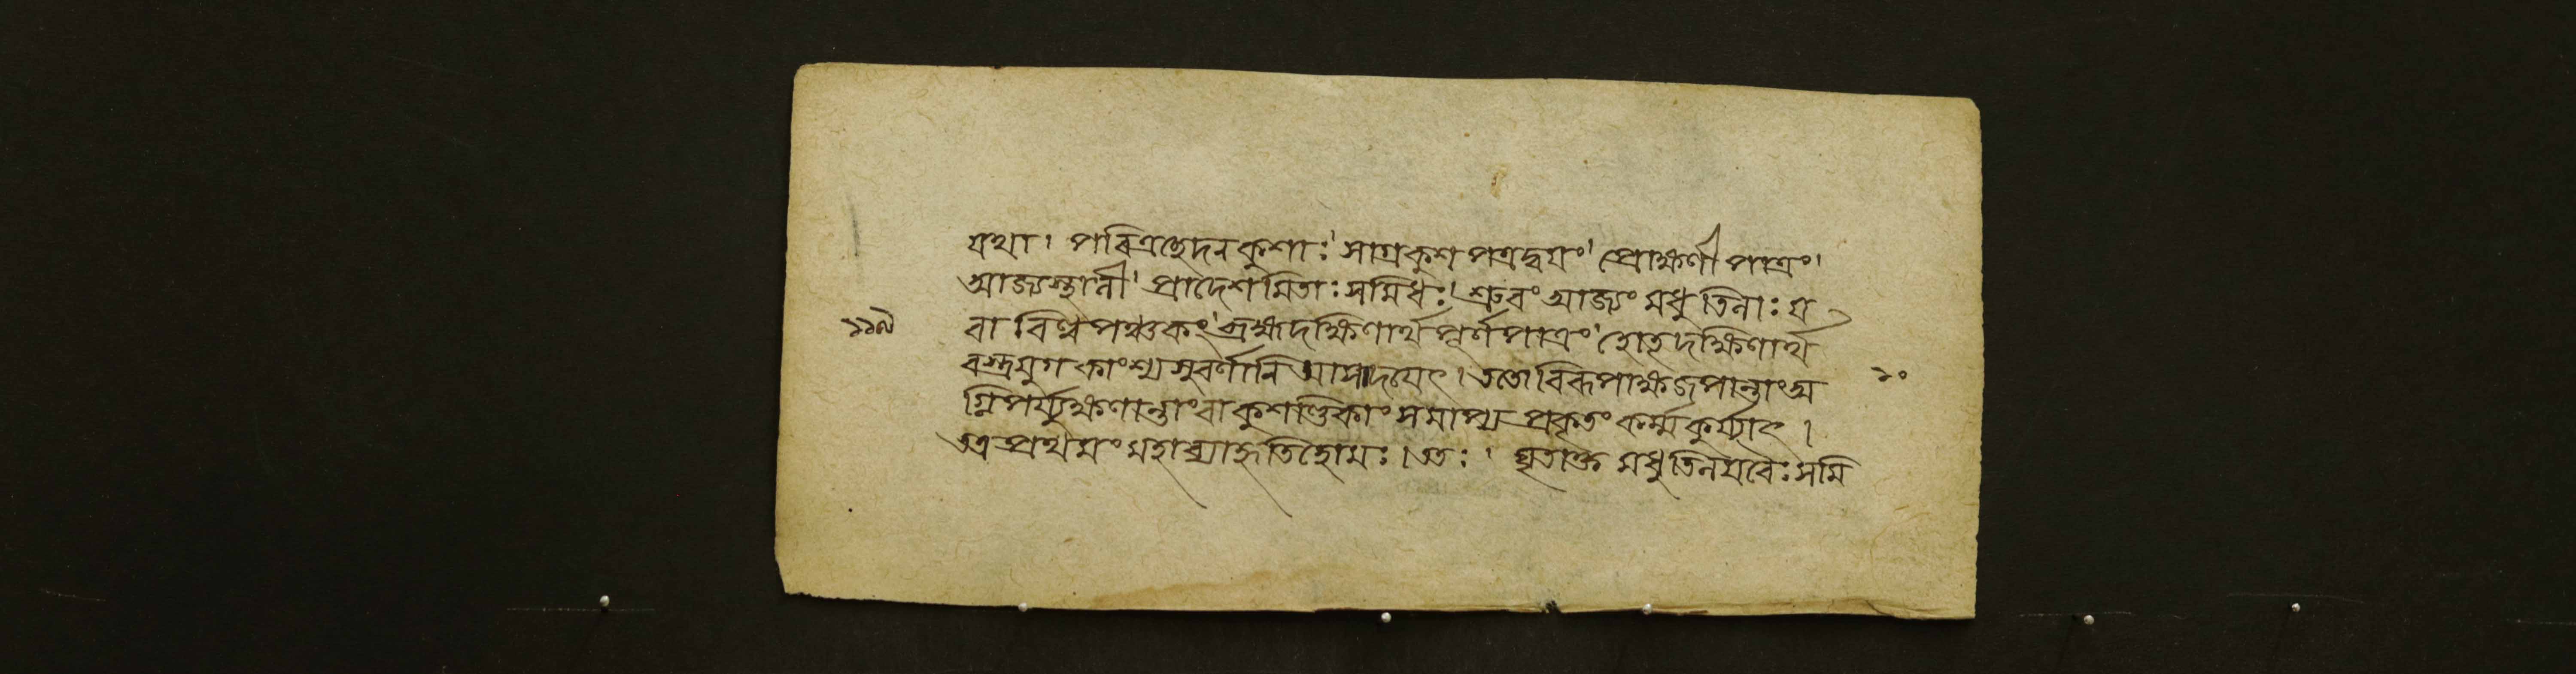 যথা। পবিত্রচ্ছেদনকুশাঃ। সাগ্রকুশপত্রদ্বয়ং। প্রোক্ষণীপাত্রং।
আজ্যস্থালী। প্রাদেশমিতাঃ সমিধঃ। শ্রুবং আজ্যং মধু তিলাঃ য
বা বিল্বপঞ্চকং। ব্রহ্মদক্ষিণার্থং পূর্ণপাত্রং। হোতৃদক্ষিণার্থং
বস্ত্রযুগকাংশ্যসুবর্ণানি আসাদয়েৎ। ততো বিরূপাক্ষজপান্তাং অ
গ্নিপর্য্যুক্ষণান্তাং বা কুশণ্ডিকাং সমাপ্য প্রকৃতং কর্ম্ম কুর্য্যাৎ।
তত্র প্রথমং মহাব্যাহৃতিহোমঃ। ততঃ। ঘৃতাক্ত মধুতিলযবৈঃ সমি
২০